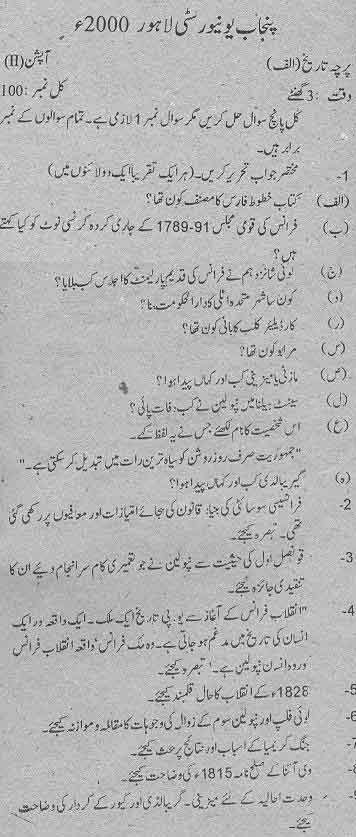 پنجاب یونیورسٹی لاہور 2000ء
پرچہ تاریخ (الف) آپشن (II)
وقت : 3 گھنٹے کل نمبر :100
کل پانچ سوال حل کریں مگر سوال نمبر 1 لازمی ہے۔ تمام سوالوں کے نمبر
برابر ہیں۔
1- مختصر جواب تحریر کریں۔ (ہر ایک تقریباً ایک دو لائنوں میں)
(الف) کتاب خطوط فارس کا مصنف کون تھا؟
(ب) فرانس کی قومی مجلس 91-1789 کے جاری کردہ کرنسی نوٹ کو کیا کہتے
ہیں؟
(ج) لوئی شانزدہم نے فرانس کی قدیم پارلیمنٹ کا اجلاس کب بلایا؟
(د) کون سا شہر متحدہ اٹلی کا دارالحکومت بنا؟
(ر) کارڈیلیئر کلب کا بانی کون تھا؟
(س) مرابو کون تھا؟
(ص) مازنی یا میزینی کب اور کہاں پیدا ہوا؟
(ل) سینٹ ہیلنا میں نپولین نے کب وفات پائی؟
(ع) اس شخصیت کا نام لکھئے جس نے یہ لفظ کہے۔
"جمہوریت صرف روز روشن کو سیاہ ترین رات میں تبدیل کر سکتی ہے۔"
(ہ) گیریبالڈی کب اور کہاں پیدا ہوا؟
2- فرانسیسی سوسائٹی کی بنیاد قانون کی بجائے امتیازات اور معافیوں پر رکھی گئی
تھی۔ تبصرہ کیجئے۔
3- قونصل اول کی حیثیت سے نپولین نے جو تعمیری کام سرانجام دیئے ان کا
تنقیدی جائزہ لیجئے۔
4- "انقلاب فرانس کے آغاز سے یورپی تاریخ ایک ملک۔ ایک واقعہ اور ایک
انسان کی تاریخ میں مدغم ہو جاتی ہے۔ وہ ملک فرانس' واقعہ انقلاب فرانس
اور وہ انسان نپولین ہے۔" تبصرہ کیجئے۔
5- 1828ء کے انقلاب کا حال قلمبند کیجئے۔
6- لوئی فلپ اور نپولین سوم کے زوال کی وجوہات کا مقابلہ و موازنہ کیجئے۔
7- جنگ کریمیا کے اسباب اور نتائج پر بحث کیجئے۔
8- وی آئنا کے صلح نامہ 1815ء کی وضاحت کیجئے۔
9- وحدت اطالیہ کے لئے میزینی۔ گریبالڈی اور کیور کے کردار کی وضاحت
کیجئے۔